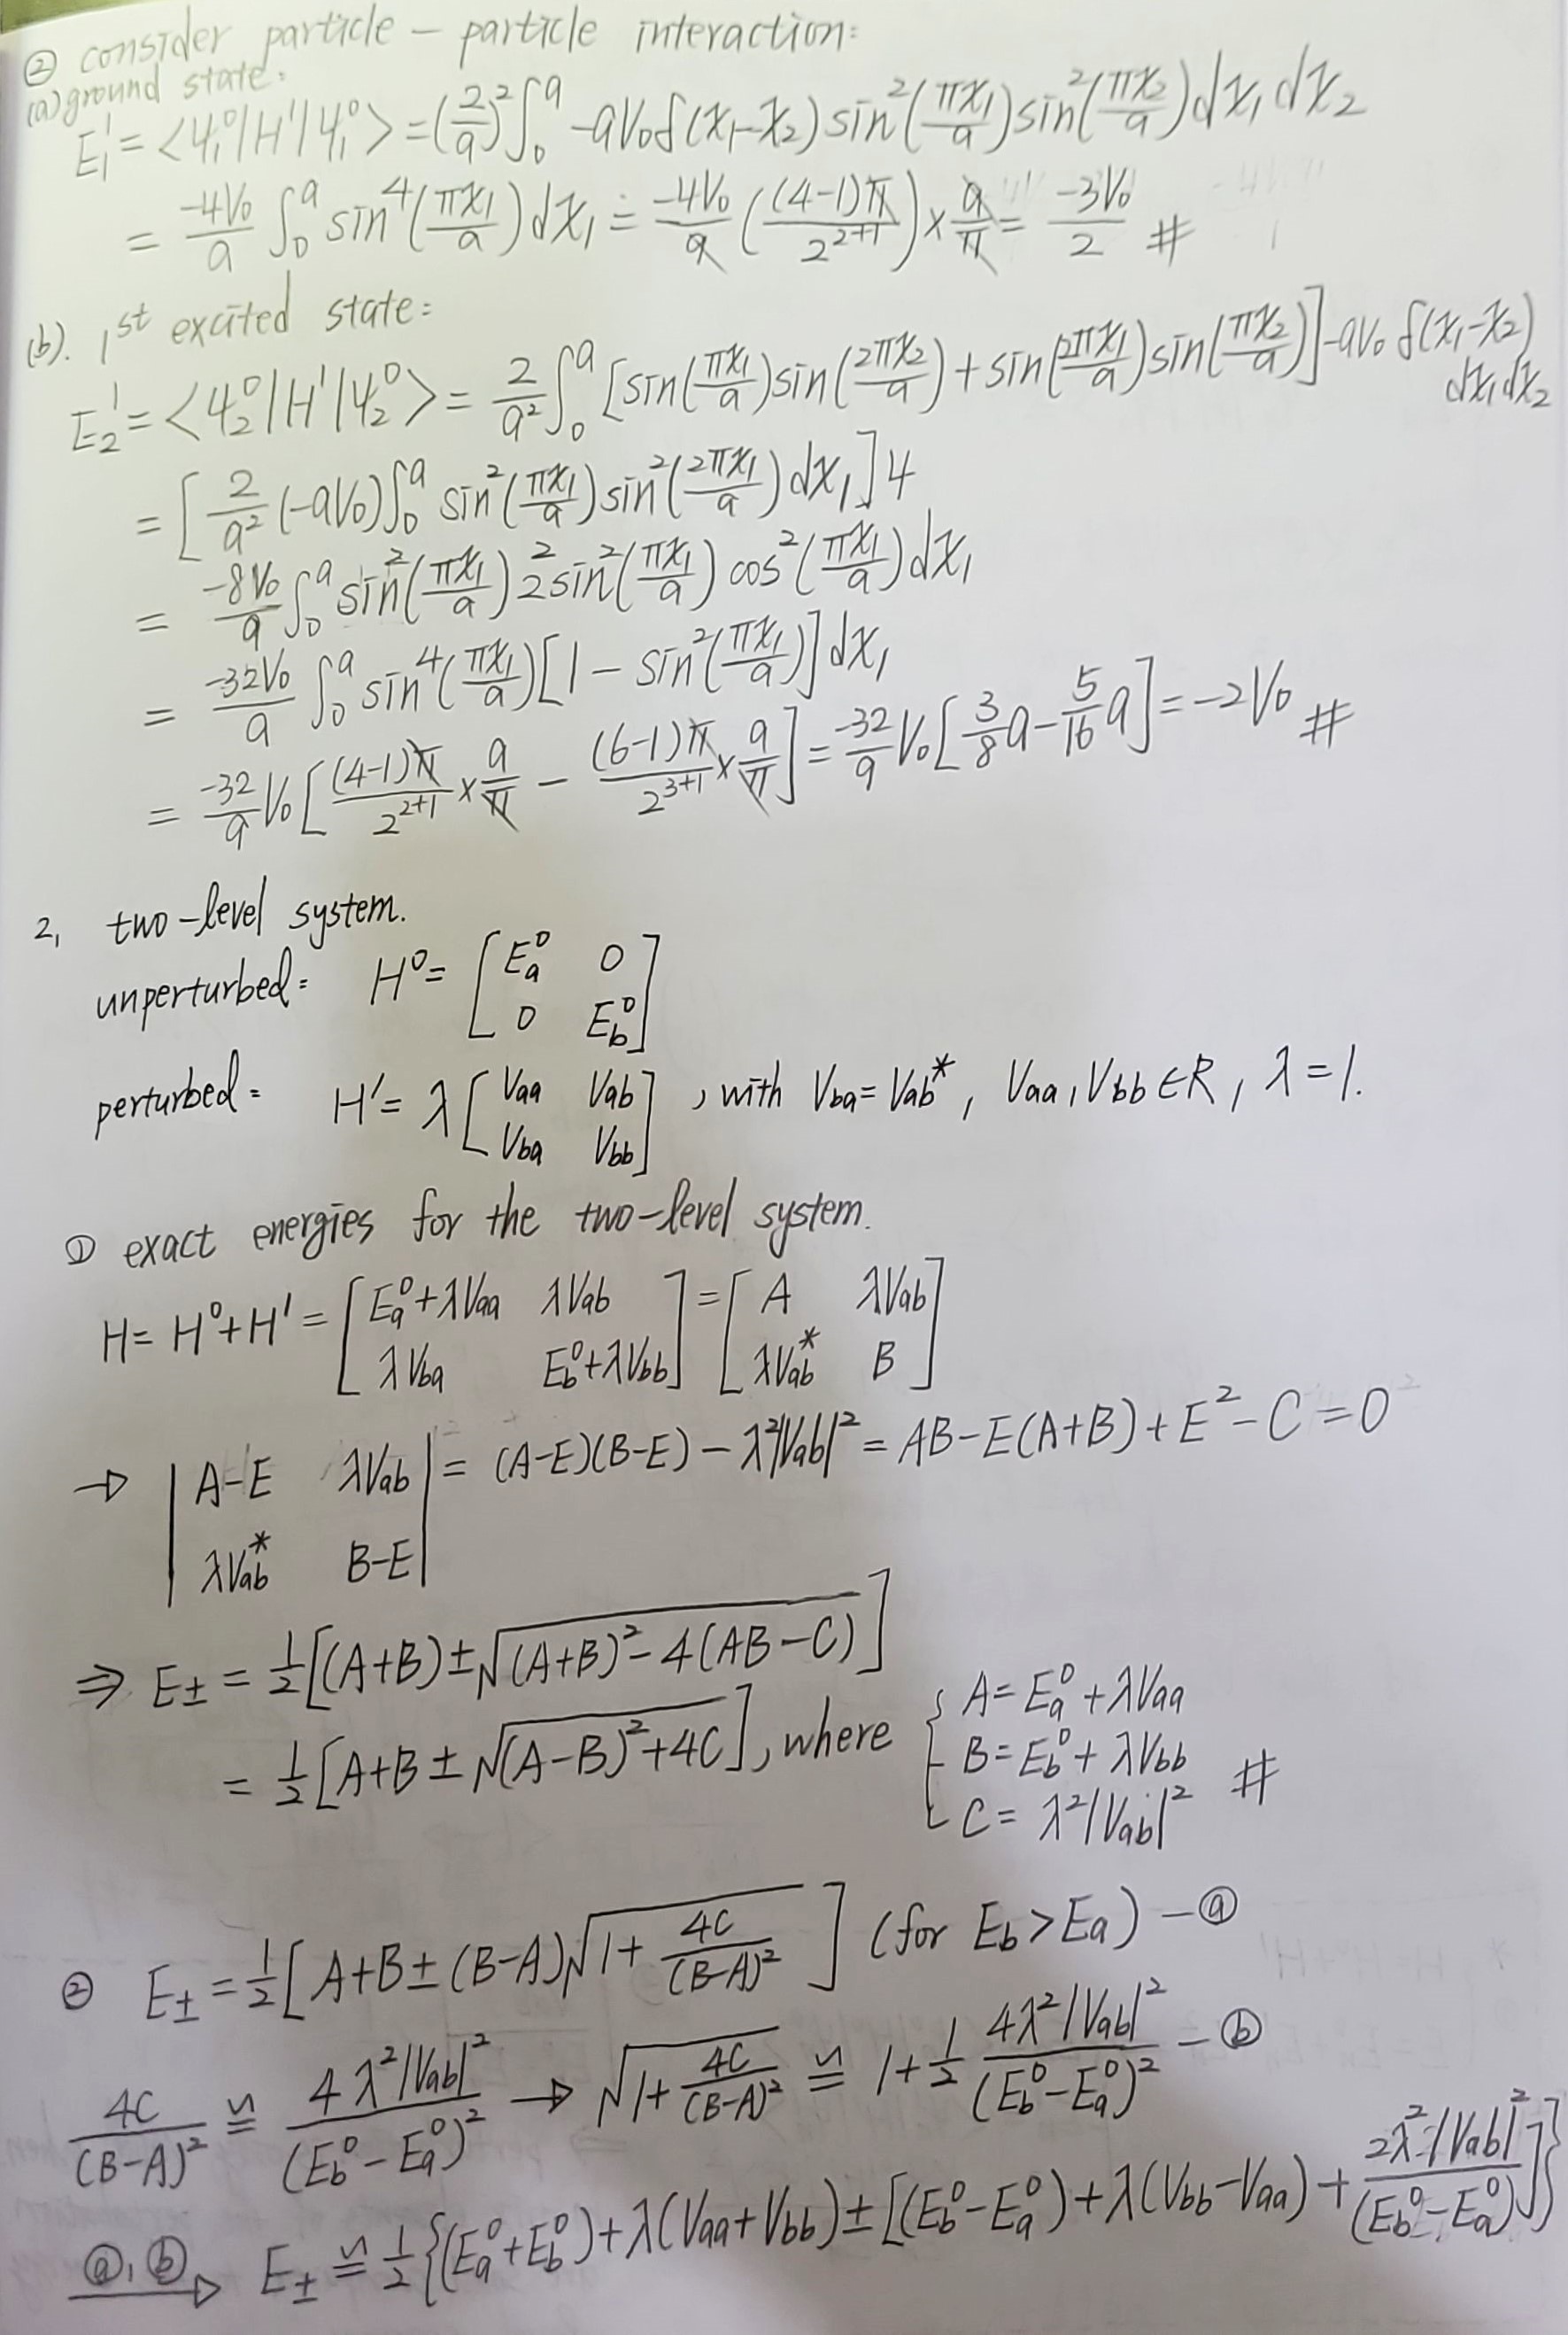 ② consider particle - particle interaction:
(a) ground state:
E₁¹ = <ψ₁⁰|H'|ψ₁⁰> = (2/a)² ∫₀ᵃ -aV₀δ(x₁-x₂) sin²(πx₁/a) sin²(πx₂/a) dx₁ dx₂
= -4V₀/a ∫₀ᵃ sin⁴(πx₁/a) dx₁ = -4V₀/a ((4-1)π/2²⁺¹) × a/π = -3V₀/2 #
(b). 1st excited state:
E₂¹ = <ψ₂⁰|H'|ψ₂⁰> = 2/a² ∫₀ᵃ [sin(πx₁/a) sin(2πx₂/a) + sin(2πx₁/a) sin(πx₂/a)] -aV₀ δ(x₁-x₂) dx₁dx₂
= [2/a² (-aV₀) ∫₀ᵃ sin²(πx₁/a) sin²(2πx₁/a) dx₁] 4
= -8V₀/a ∫₀ᵃ sin²(πx₁/a) 2² sin²(πx₁/a) cos²(πx₁/a) dx₁
= -32V₀/a ∫₀ᵃ sin⁴(πx₁/a) [1 - sin²(πx₁/a)] dx₁
= -32/a V₀ [(4-1)π/2²⁺¹ × a/π - (6-1)π/2³⁺¹ × a/π] = -32/a V₀ [3/8 a - 5/16 a] = -2V₀ #
2, two-level system.
unperturbed: H⁰ = [Ea⁰ 0
0 Eb⁰]
perturbed: H' = λ [Vaa Vab
Vba Vbb], with Vba = Vab*, Vaa, Vbb ∈ R, λ = 1.
① exact energies for the two-level system.
H = H⁰+H' = [Ea⁰+λVaa λVab
λVba Eb⁰+λVbb] = [A λVab
λVab* B]
→ |A-E λVab
λVab* B-E| = (A-E)(B-E) - λ²|Vab|² = AB-E(A+B)+E²-C = 0
⇒ E± = 1/2 [(A+B) ± √((A+B)² - 4(AB-C))]
= 1/2 [A+B ± √((A-B)²+4C)], where { A = Ea⁰ + λVaa
B = Eb⁰ + λVbb
C = λ²|Vab|² #
② E± = 1/2 [A+B ± (B-A)√(1 + 4C/(B-A)²)] (for Eb > Ea) - ⓐ
4C/(B-A)² ≌ 4λ²|Vab|²/(Eb⁰-Ea⁰)² → √(1 + 4C/(B-A)²) ≌ 1 + 1/2 4λ²|Vab|²/(Eb⁰-Ea⁰)² - ⓑ
ⓐ, ⓑ → E± ≌ 1/2 {(Ea⁰+Eb⁰) + λ(Vaa+Vbb) ± [(Eb⁰-Ea⁰) + λ(Vbb-Vaa) + 2λ²|Vab|²/(Eb⁰-Ea⁰)]}